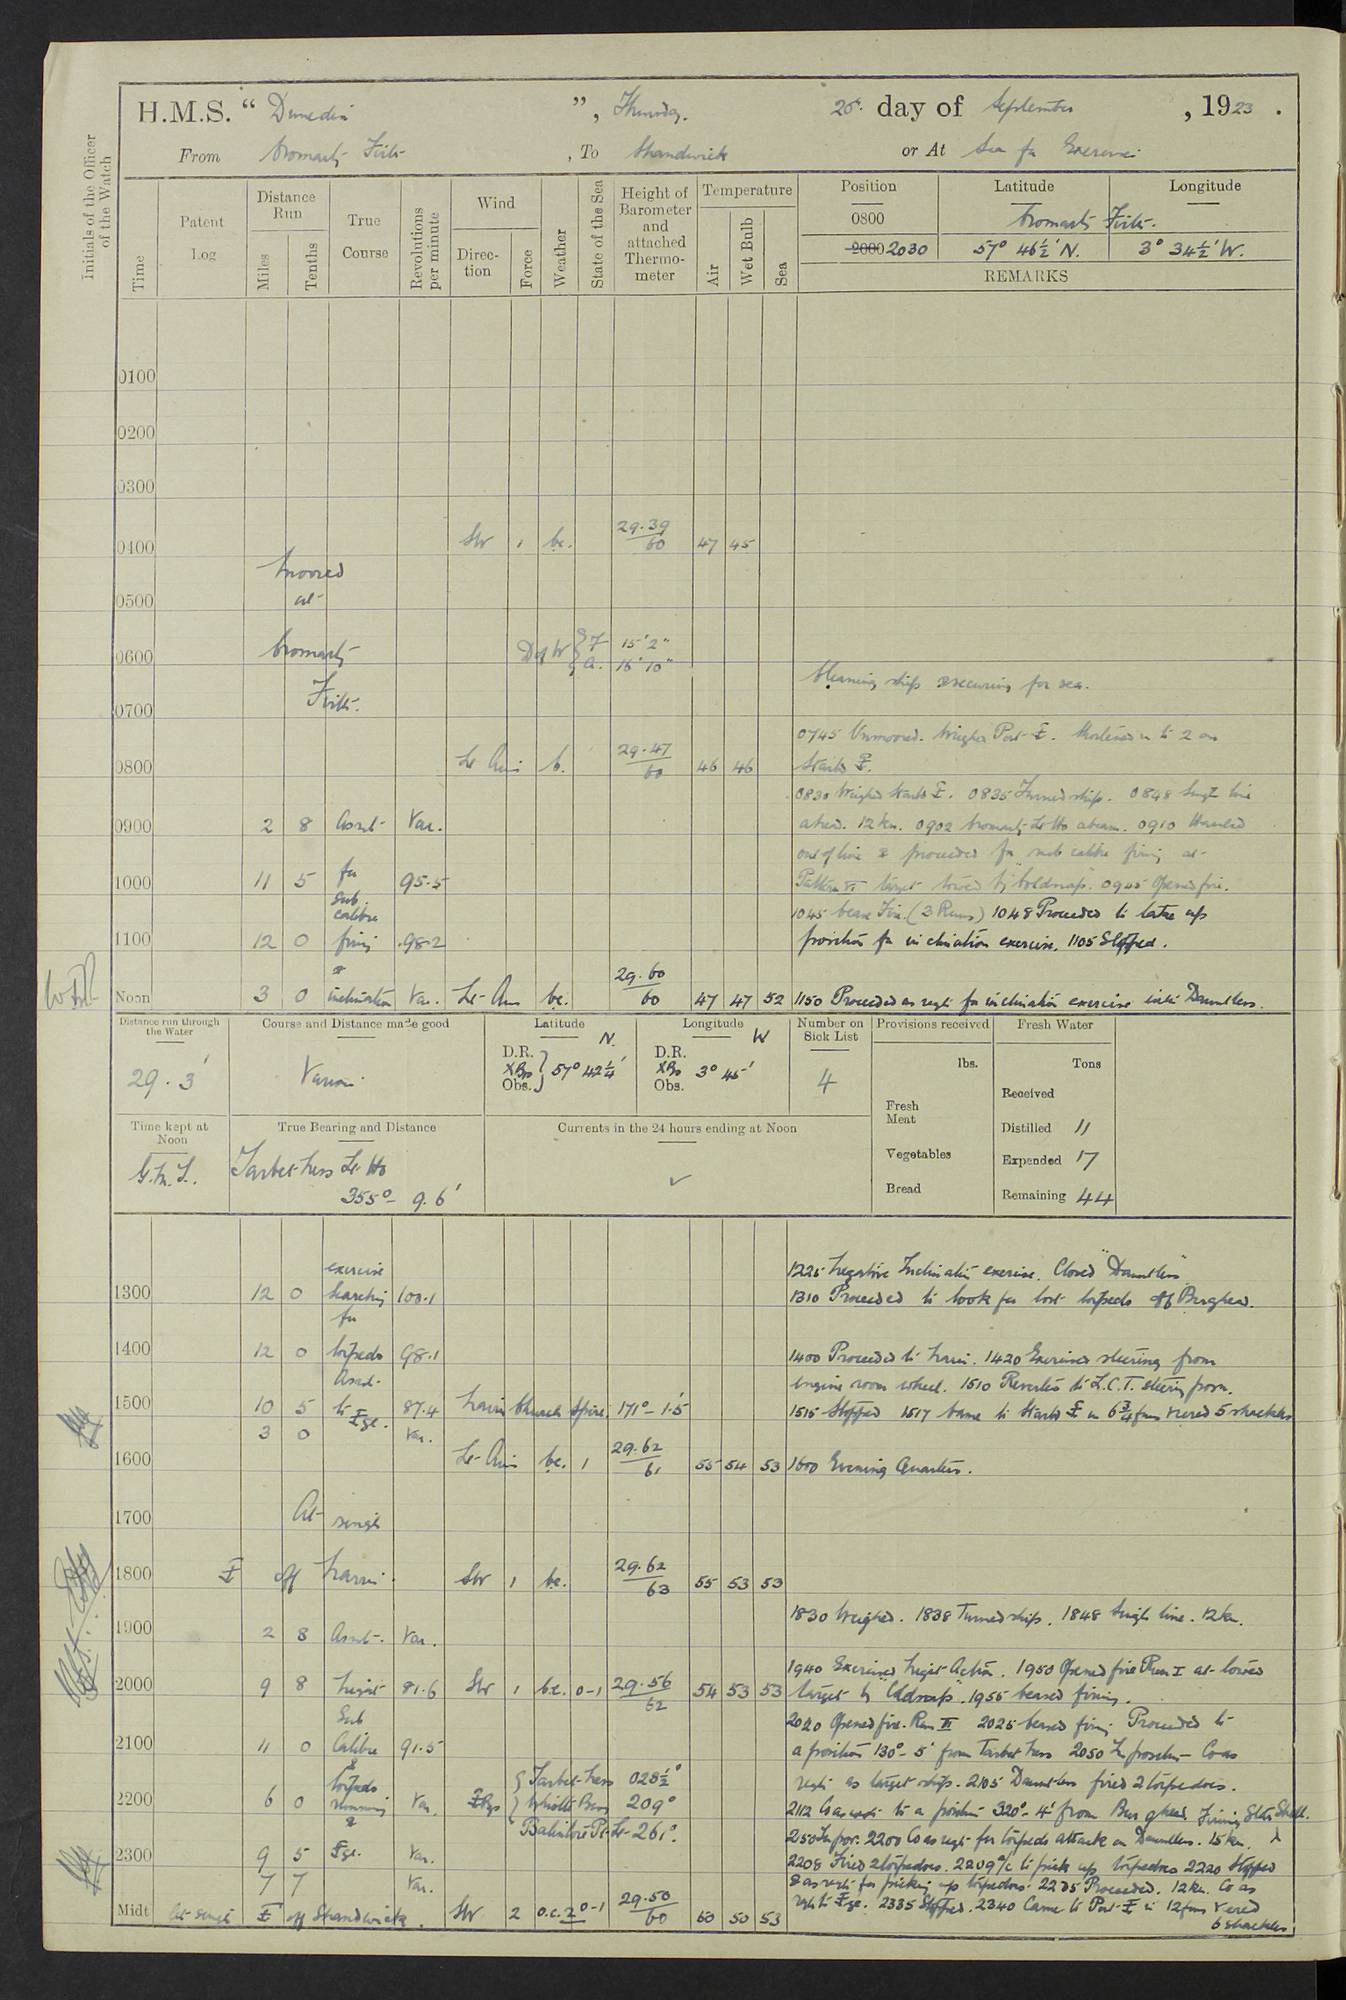 H.M.S. “ Dunedin ”, Thursday. 20th day of September, 1923.
From Cromarty Firth, To Shandwick or At Sea for Exercise
Initials of the Officer of the Watch
Time
Patent Log
Distance Run
Miles
Tenths
True Course
Revolutions per minute
Wind
Direction
Force
Weather
State of the Sea
Height of Barometer and attached Thermometer
Temperature
Air
Wet Bulb
Sea
Position Latitude Longitude
0800 Cromarty Firth.
2000 2030 57° 46½' N. 3° 34½' W.
REMARKS
0100
0200
0300
0400 SW 1 bc. 29.39 60 47 45
Moored
0500 at
0600 Cromarty Dof W { F 15' 2"
A. 16' 10"
Firth.
Cleaning ship & securing for sea.
0700
0745 Unmoored. Weighed Port. Shortened in to 2 on
0800 Lt Airs b. 29.47 60 46 46 Starbd
0830 Weighed Starbd. 0835 Turned ship. 0848 Single line
0900 2 8 Asreqt Var. ahead. 12 kn. 0902 Cromarty Lt Ho abeam. 0910 Hauled
out of line & proceeded for sub calibre firing at
1000 11 5 for 95.5 Pattern VI target towed by "Coldsnap". 0945 Opened fire.
sub. calibre
1045 Cease Fire. (3 Runs) 1048 Proceeded to take up
1100 12 0 firing 98.2 position for inclination exercise. 1105 Stopped.
&
Noon 3 0 inclination Var. Lt Airs bc. 29.60 60 47 47 52 1150 Proceeded as reqt for inclination exercise with Dauntless.
Distance run through the Water
29.3'
Course and Distance made good
Various
Latitude N.
D.R. X Bgs Obs. } 57° 42¼'
Longitude W
D.R. X Bgs Obs. 3° 45'
Number on Sick List
4
Provisions received
lbs.
Fresh Meat
Vegetables
Bread
Fresh Water
Tons
Received
Distilled 11
Expended 17
Remaining 44
Time kept at Noon
G.M.T.
True Bearing and Distance
Tarbet Ness Lt Ho
355° – 9.6'
Currents in the 24 hours ending at Noon
✓
exercise 1225 Negative Inclination exercise. Closed "Dauntless"
1300 12 0 Searching 100.1 1310 Proceeded to look for lost torpedo off Burghead.
for
1400 12 0 torpedo 98.1 1400 Proceeded to Nairn. 1420 Exercised steering from
Asreqt engine room wheel. 1510 Reverted to L.C.T. steering posn.
1500 10 5 to 87.4 Nairn Church Spire. 171° – 1.5' 1515 Stopped 1517 Came to Starbd in 6¾ fms veered 5 shackles
3 0 Var.
1600 Lt Airs bc. 1 29.62 61 55 54 53 1600 Evening Quarters.
1700 At single
1800 off Nairn. SW 1 bc. 29.62 63 55 53 53
1830 Weighed. 1838 Turned ship. 1848 Single line. 12 kn.
1900 2 8 Asreqt. Var.
1940 Exercised Night Action. 1950 Opened fire Run I at towed
2000 9 8 Night 81.6 SW 1 bc. 0-1 29.56 62 54 53 53 target by "Coldsnap". 1955 Ceased firing.
Sub 2020 Opened fire. Run II 2025 Ceased firing Proceeded to
2100 11 0 Calibre 91.5 a position 130° – 5' from Tarbet Ness 2050 In position – Co as
& torpedo { Tarbet Ness 028½° reqt as target ship. 2105 Dauntless fired 2 torpedoes.
2200 6 0 running Var. Bgs Whistle Buoy 209° 2112 Co as reqt to a position 320° – 4' from Burghead.
& Balintore Pr. Lt – 261°. 2150 In posn. 2200 Co as reqt for torpedo attack on Dauntless. 15 kn.
2300 9 5 Var. 2208 Fired 2 torpedoes. 2209 a/c to pick up torpedoes 2220 Stopped
7 7 Var. & as reqt for picking up torpedoes. 2235 Proceeded. 12 kn. Co as
Midt At single off Shandwick. SW 2 o.c. 0-1 29.50 60 50 50 53 reqt to. 2335 Stopped. 2340 Came to Port in 12 fms veered
6 shackles